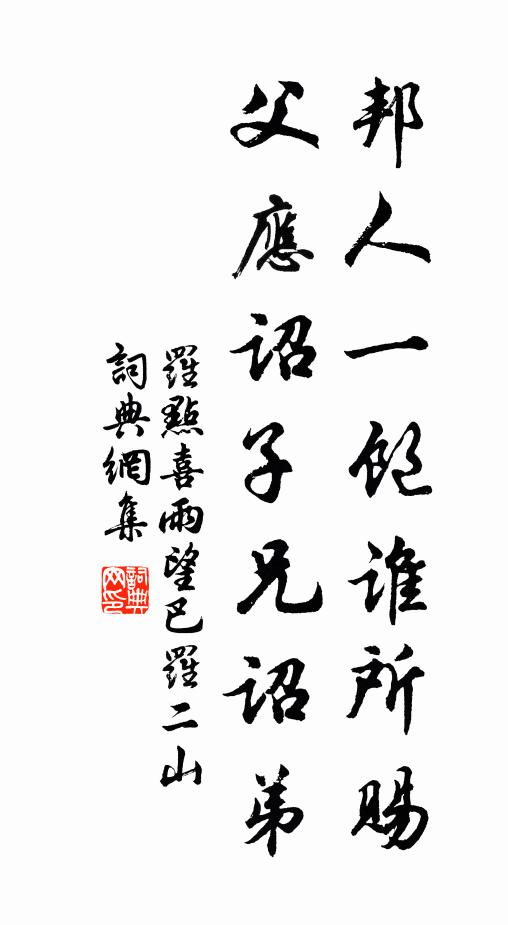 邦人一飽誰所賜
父應詔子兄詔弟
羅點喜雨望巴羅二山
詞典網集
詞典网印